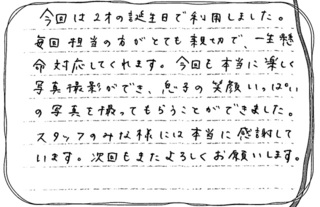 今回は2才の誕生日で利用しました。
毎回担当の方がとても親切で、一生懸
命対応してくれます。今回も本当に楽しく
写真撮影ができ、息子の笑顔いっぱい
の写真を撮ってもらうことができました。
スタッフのみな様には本当に感謝して
います。次回もまたよろしくお願いします。